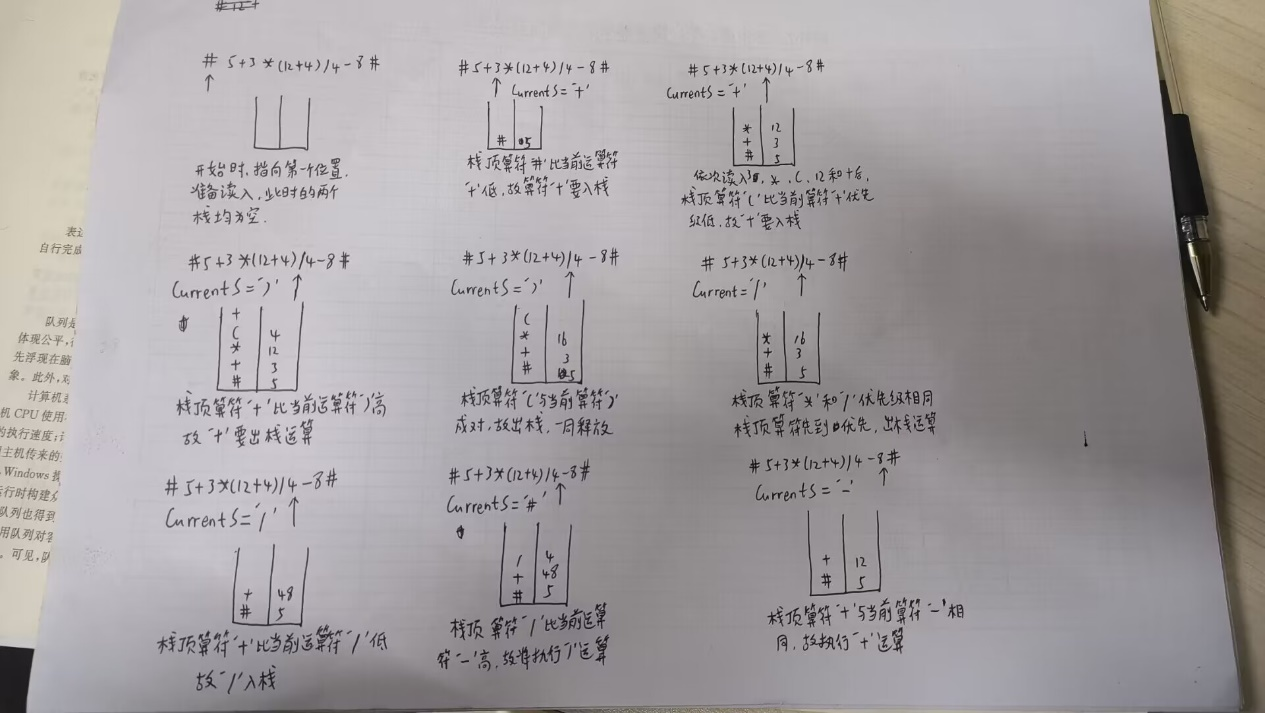 # 12 +
# 5+3*(12+4)/4-8#
↑
开始时,指向第一个位置.
准备读入,此时的两个
栈均为空.
#5+3*(12+4)/4-8#
↑ CurrentS='+'
# 5
栈顶算符'#'比当前运算符
'+'低,故算符'+'要入栈
#5+3*(12+4)/4-8#
CurrentS='+' ↑
* 12
+ 3
# 5
依次读入3,*,(,12和+后,
栈顶算符'('比当前算符'+'优先
级低,故'+'要入栈
#5+3*(12+4)/4-8#
CurrentS=')' ↑
+
( 4
* 12
+ 3
# 5
栈顶算符'+'比当前运算符')'高
故'+'要出栈运算
#5+3*(12+4)/4-8#
CurrentS=')' ↑
(
* 16
+ 3
# 5
栈顶算符'('与当前算符')'
成对,故出栈,一同释放
#5+3*(12+4)/4-8#
Current='/' ↑
* 16
+ 3
# 5
栈顶算符'*'和'/'优先级相同
栈顶算符先到优先,出栈运算
#5+3*(12+4)/4-8#
CurrentS='/' ↑
+ 48
# 5
栈顶算符'+'比当前运算符'/'低
故'/'入栈
#5+3*(12+4)/4-8#
CurrentS='#' ↑
/ 4
+ 48
# 5
栈顶算符'/'比当前运算
符'-'高,故 执行'/'运算
#5+3*(12+4)/4-8#
CurrentS='-' ↑
+ 12
# 5
栈顶算符'+'与当前算符'-'相
同,故执行'+'运算
表达
自行完成
队列是
体现公平,
先浮现在脑
象。此外,对
计算机
机 CPU 使用
的执行速度;
主机传来的
Windows
运行时构建
队列也得到
用队列对
。可见,队